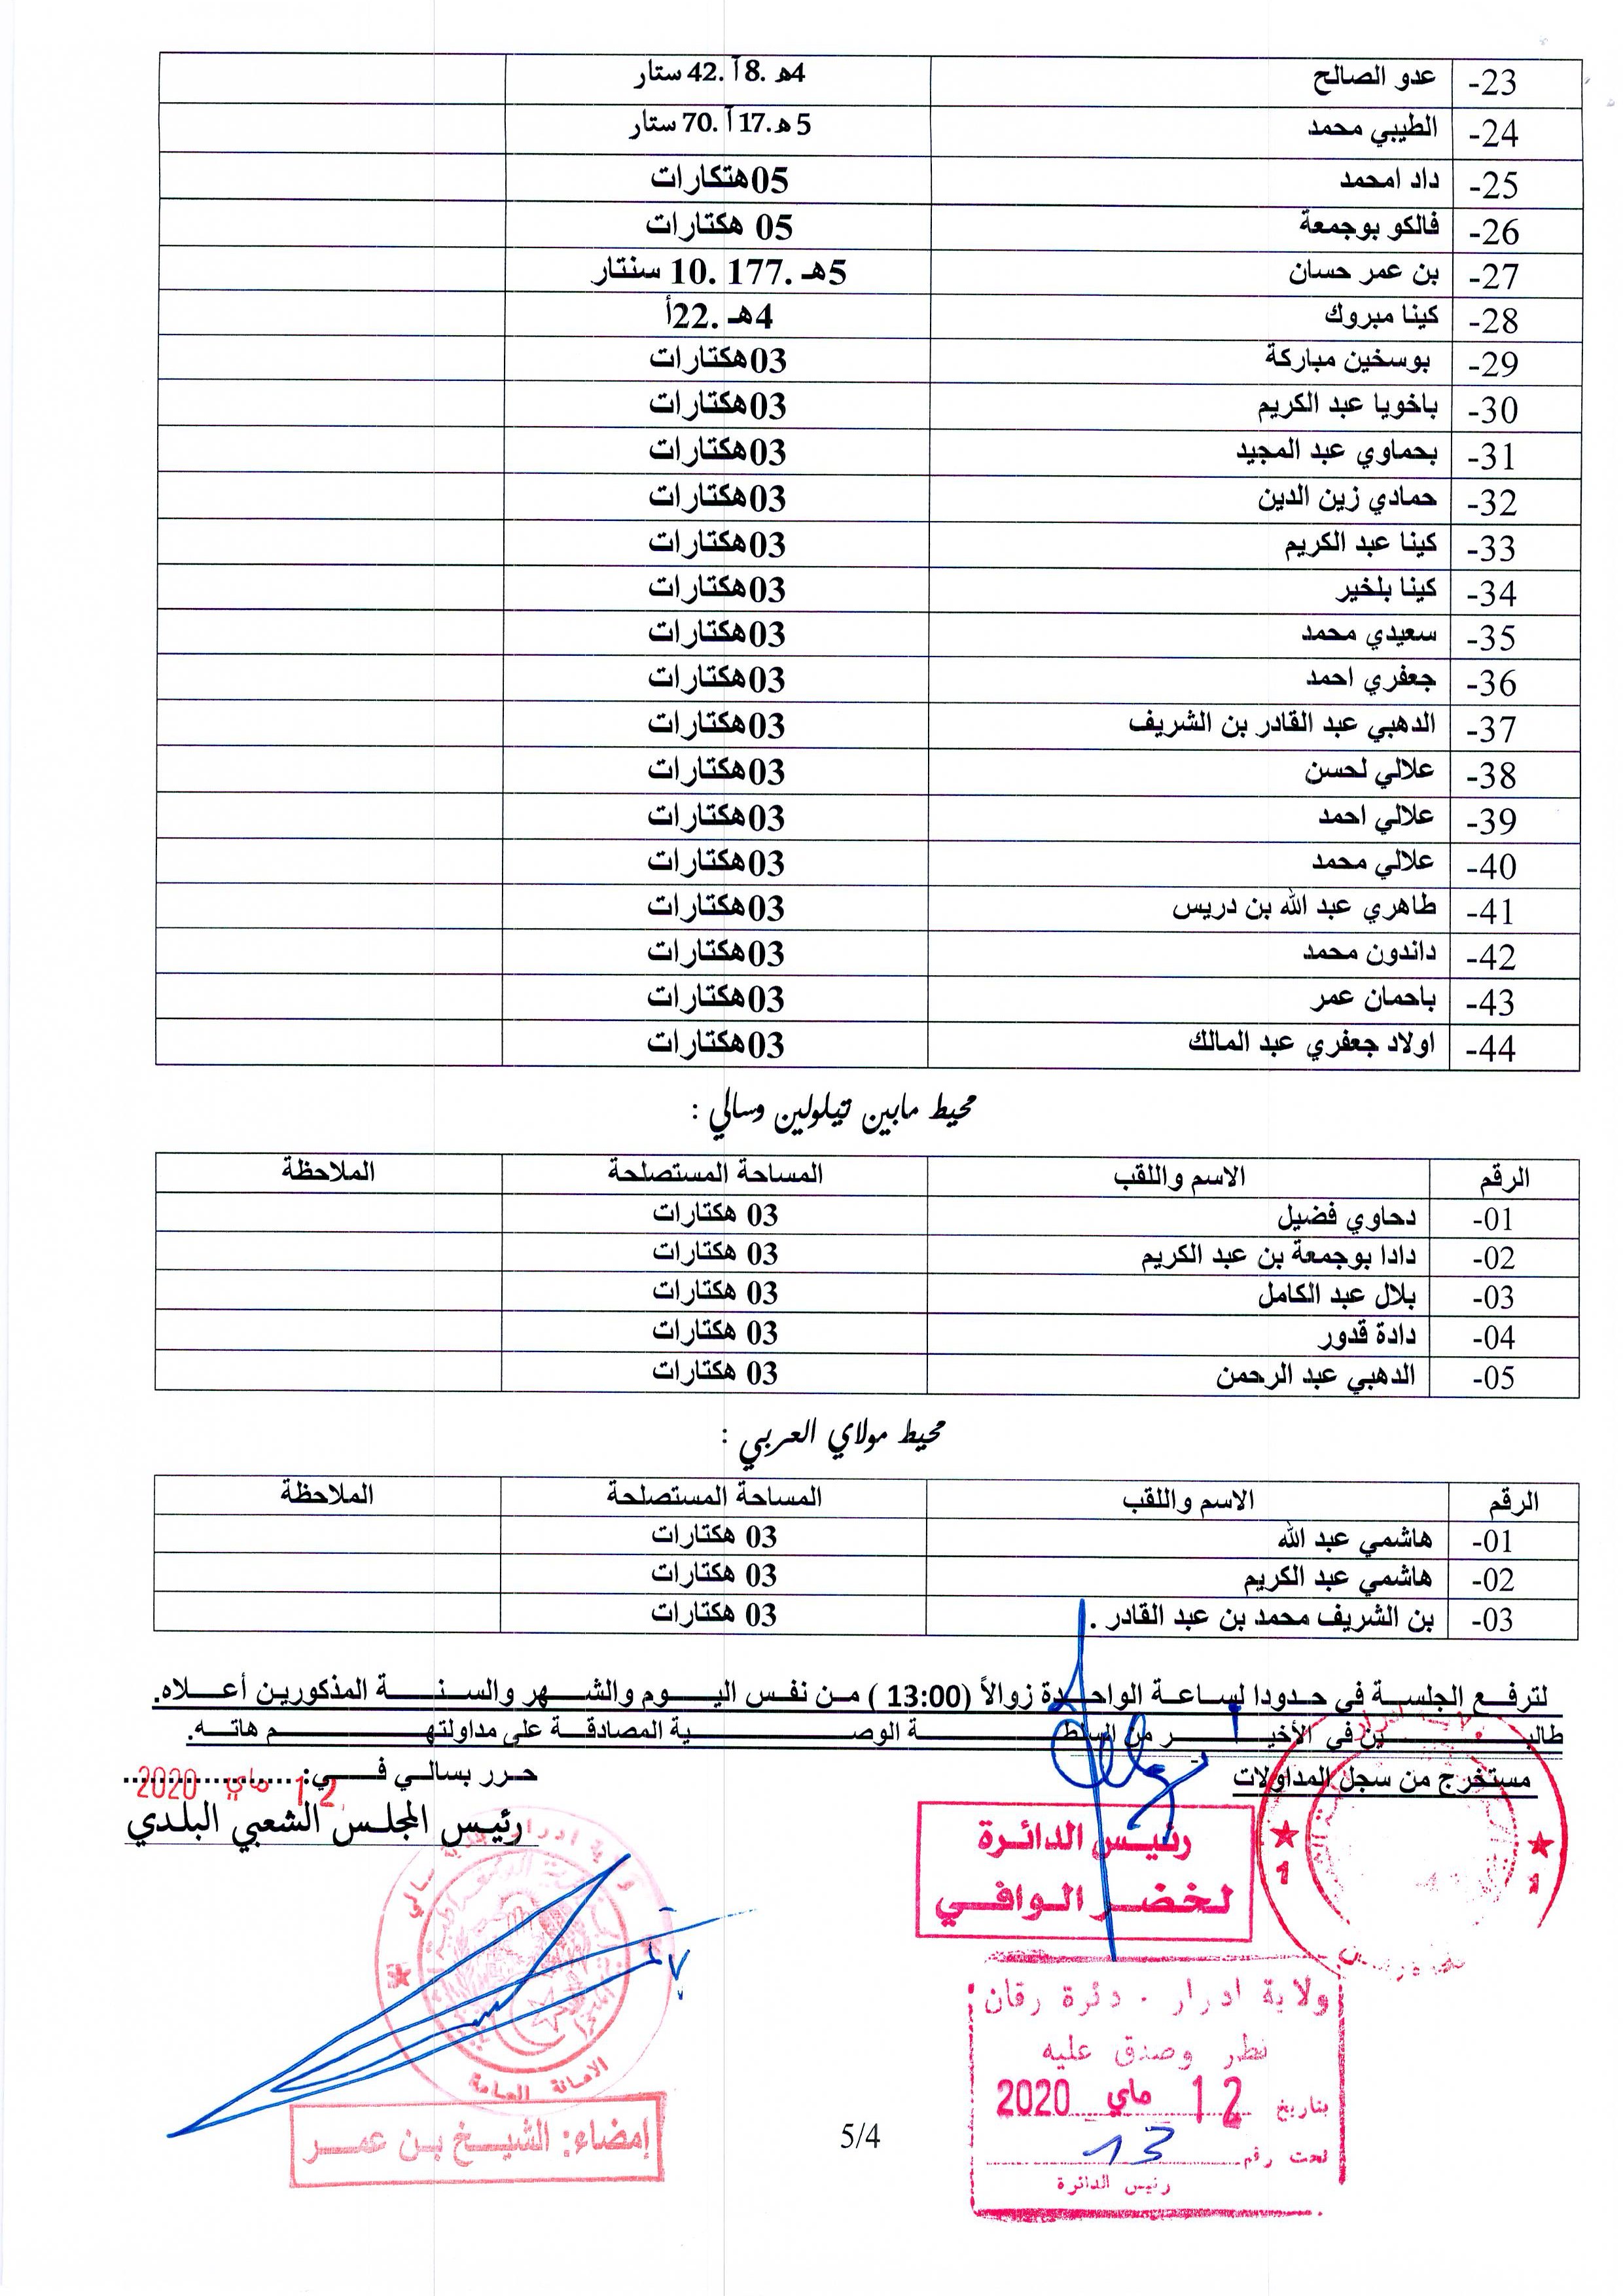 23- عدو الصالح 4هـ .8آ .42 ستار
24- الطيبي محمد 5 هـ.17 آ .70 ستار
25- داد امحمد 05هتكارات
26- فالكو بوجمعة 05 هكتارات
27- بن عمر حسان 5هـ .177 .10 سنتار
28- كينا مبروك 4هـ .22أ
29- بوسخين مباركة 03هكتارات
30- باخويا عبد الكريم 03هكتارات
31- بحماوي عبد المجيد 03هكتارات
32- حمادي زين الدين 03هكتارات
33- كينا عبد الكريم 03هكتارات
34- كينا بلخير 03هكتارات
35- سعيدي محمد 03هكتارات
36- جعفري احمد 03هكتارات
37- الدهبي عبد القادر بن الشريف 03هكتارات
38- علالي لحسن 03هكتارات
39- علالي احمد 03هكتارات
40- علالي محمد 03هكتارات
41- طاهري عبد الله بن دريس 03هكتارات
42- داندون محمد 03هكتارات
43- باحمان عمر 03هكتارات
44- اولاد جعفري عبد المالك 03هكتارات
محيط مابين تيلولين وسالي :
الرقم الاسم واللقب المساحة المستصلحة الملاحظة
01- دحاوي فضيل 03 هكتارات
02- دادا بوجمعة بن عبد الكريم 03 هكتارات
03- بلال عبد الكامل 03 هكتارات
04- دادة قدور 03 هكتارات
05- الدهبي عبد الرحمن 03 هكتارات
محيط مولاي العربي :
الرقم الاسم واللقب المساحة المستصلحة الملاحظة
01- هاشمي عبد الله 03 هكتارات
02- هاشمي عبد الكريم 03 هكتارات
03- بن الشريف محمد بن عبد القادر . 03 هكتارات
لترفع الجلسة في حدودا لساعة الواحدة زوالاً (13:00 ) من نفس اليوم والشهر والسنة المذكورين أعلاه.
طالبين في الأخير من السلطة الوصية المصادقة على مداولتهم هاته.
حرر بسالي في:.................... 12 ماي 2020
مستخرج من سجل المداولات
رئيس المجلس الشعبي البلدي
رئيس الدائرة
لخضر الوافي
ولاية ادرار . دئرة رقان
نظر وصدق عليه
بتاريخ 12 ماي 2020
تحت رقم 13
رئيس الدائرة
الامانة العامة
إمضاء: الشيخ بن عمر
5/4